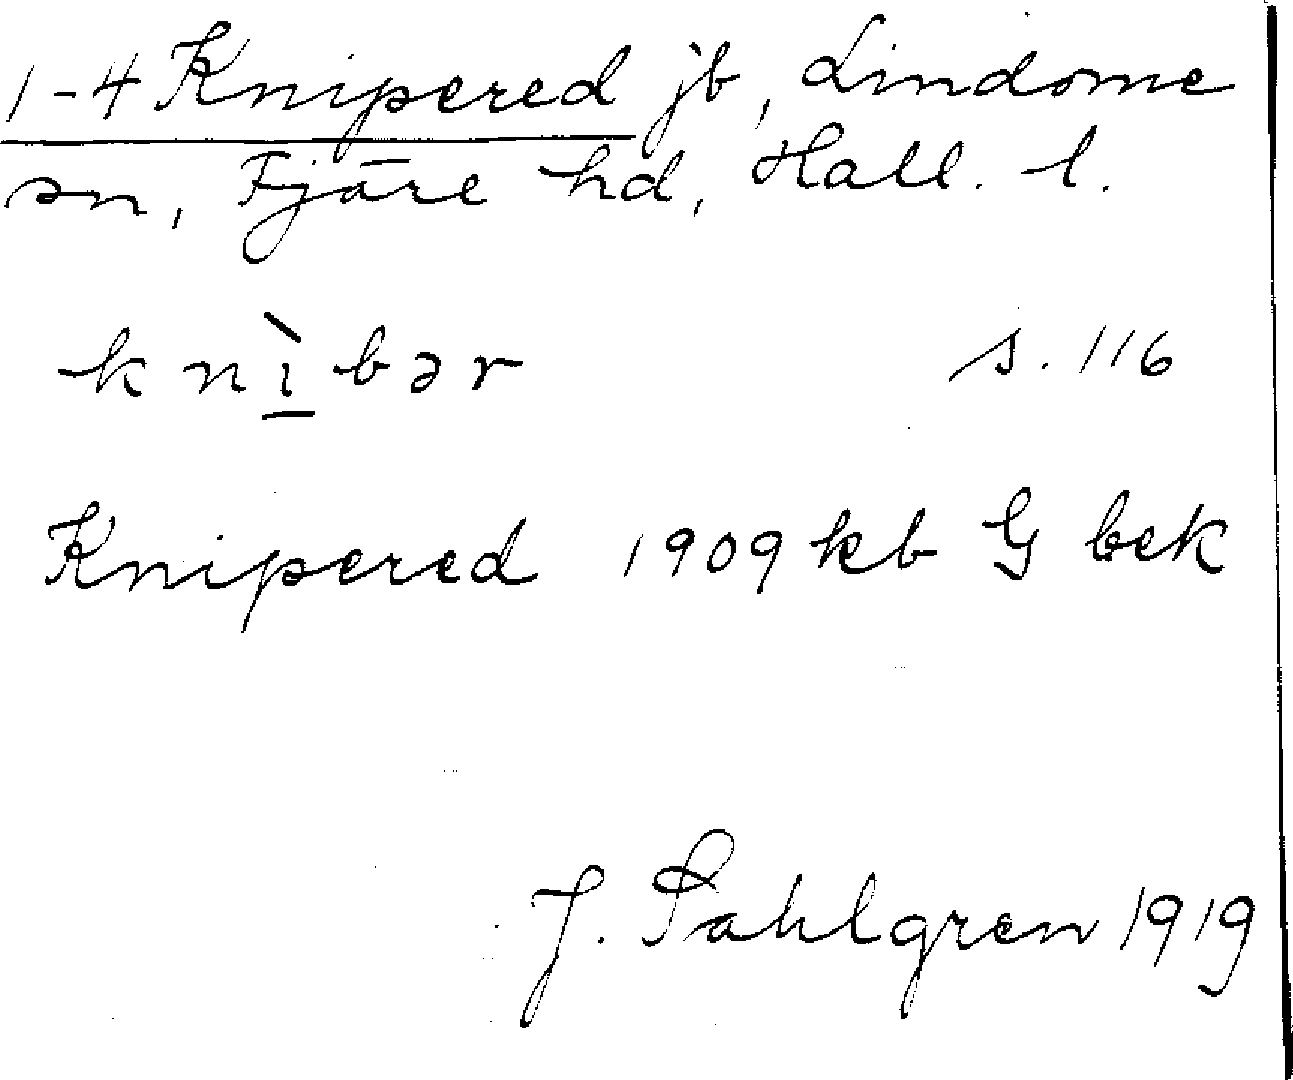 1-4 Knipered jb, Lindome
sn, Fjäre hd, Hall. l.
knìbər s. 116
Knipered 1909 kb G bek
J. Sahlgren 1919